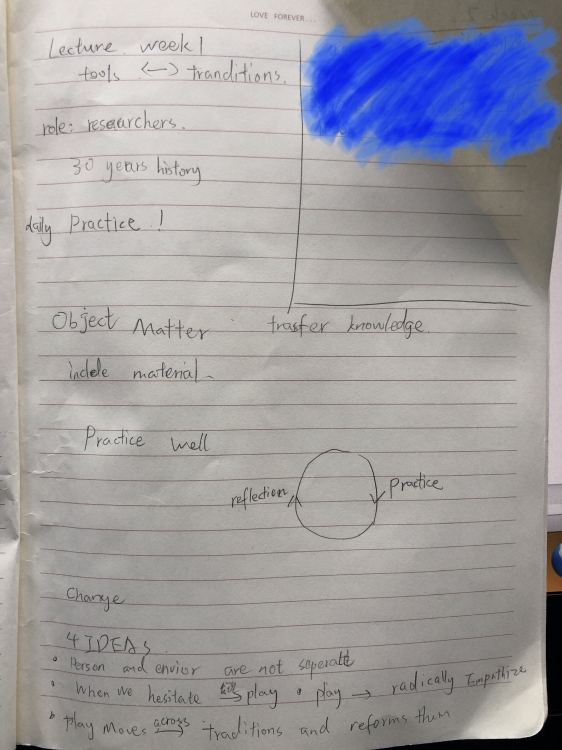 LOVE FOREVER...
Lecture week 1
tools <—> tranditions.
role: researchers.
30 years history
daily Practice !
Object Matter trasfer knowledge
inclele material.
Practice well
reflection Practice
Change
4 IDEAS
• Person and envior are not seperatt
• When we hesitate play • play → radically Empathize
• play moves across traditions and reforms thm